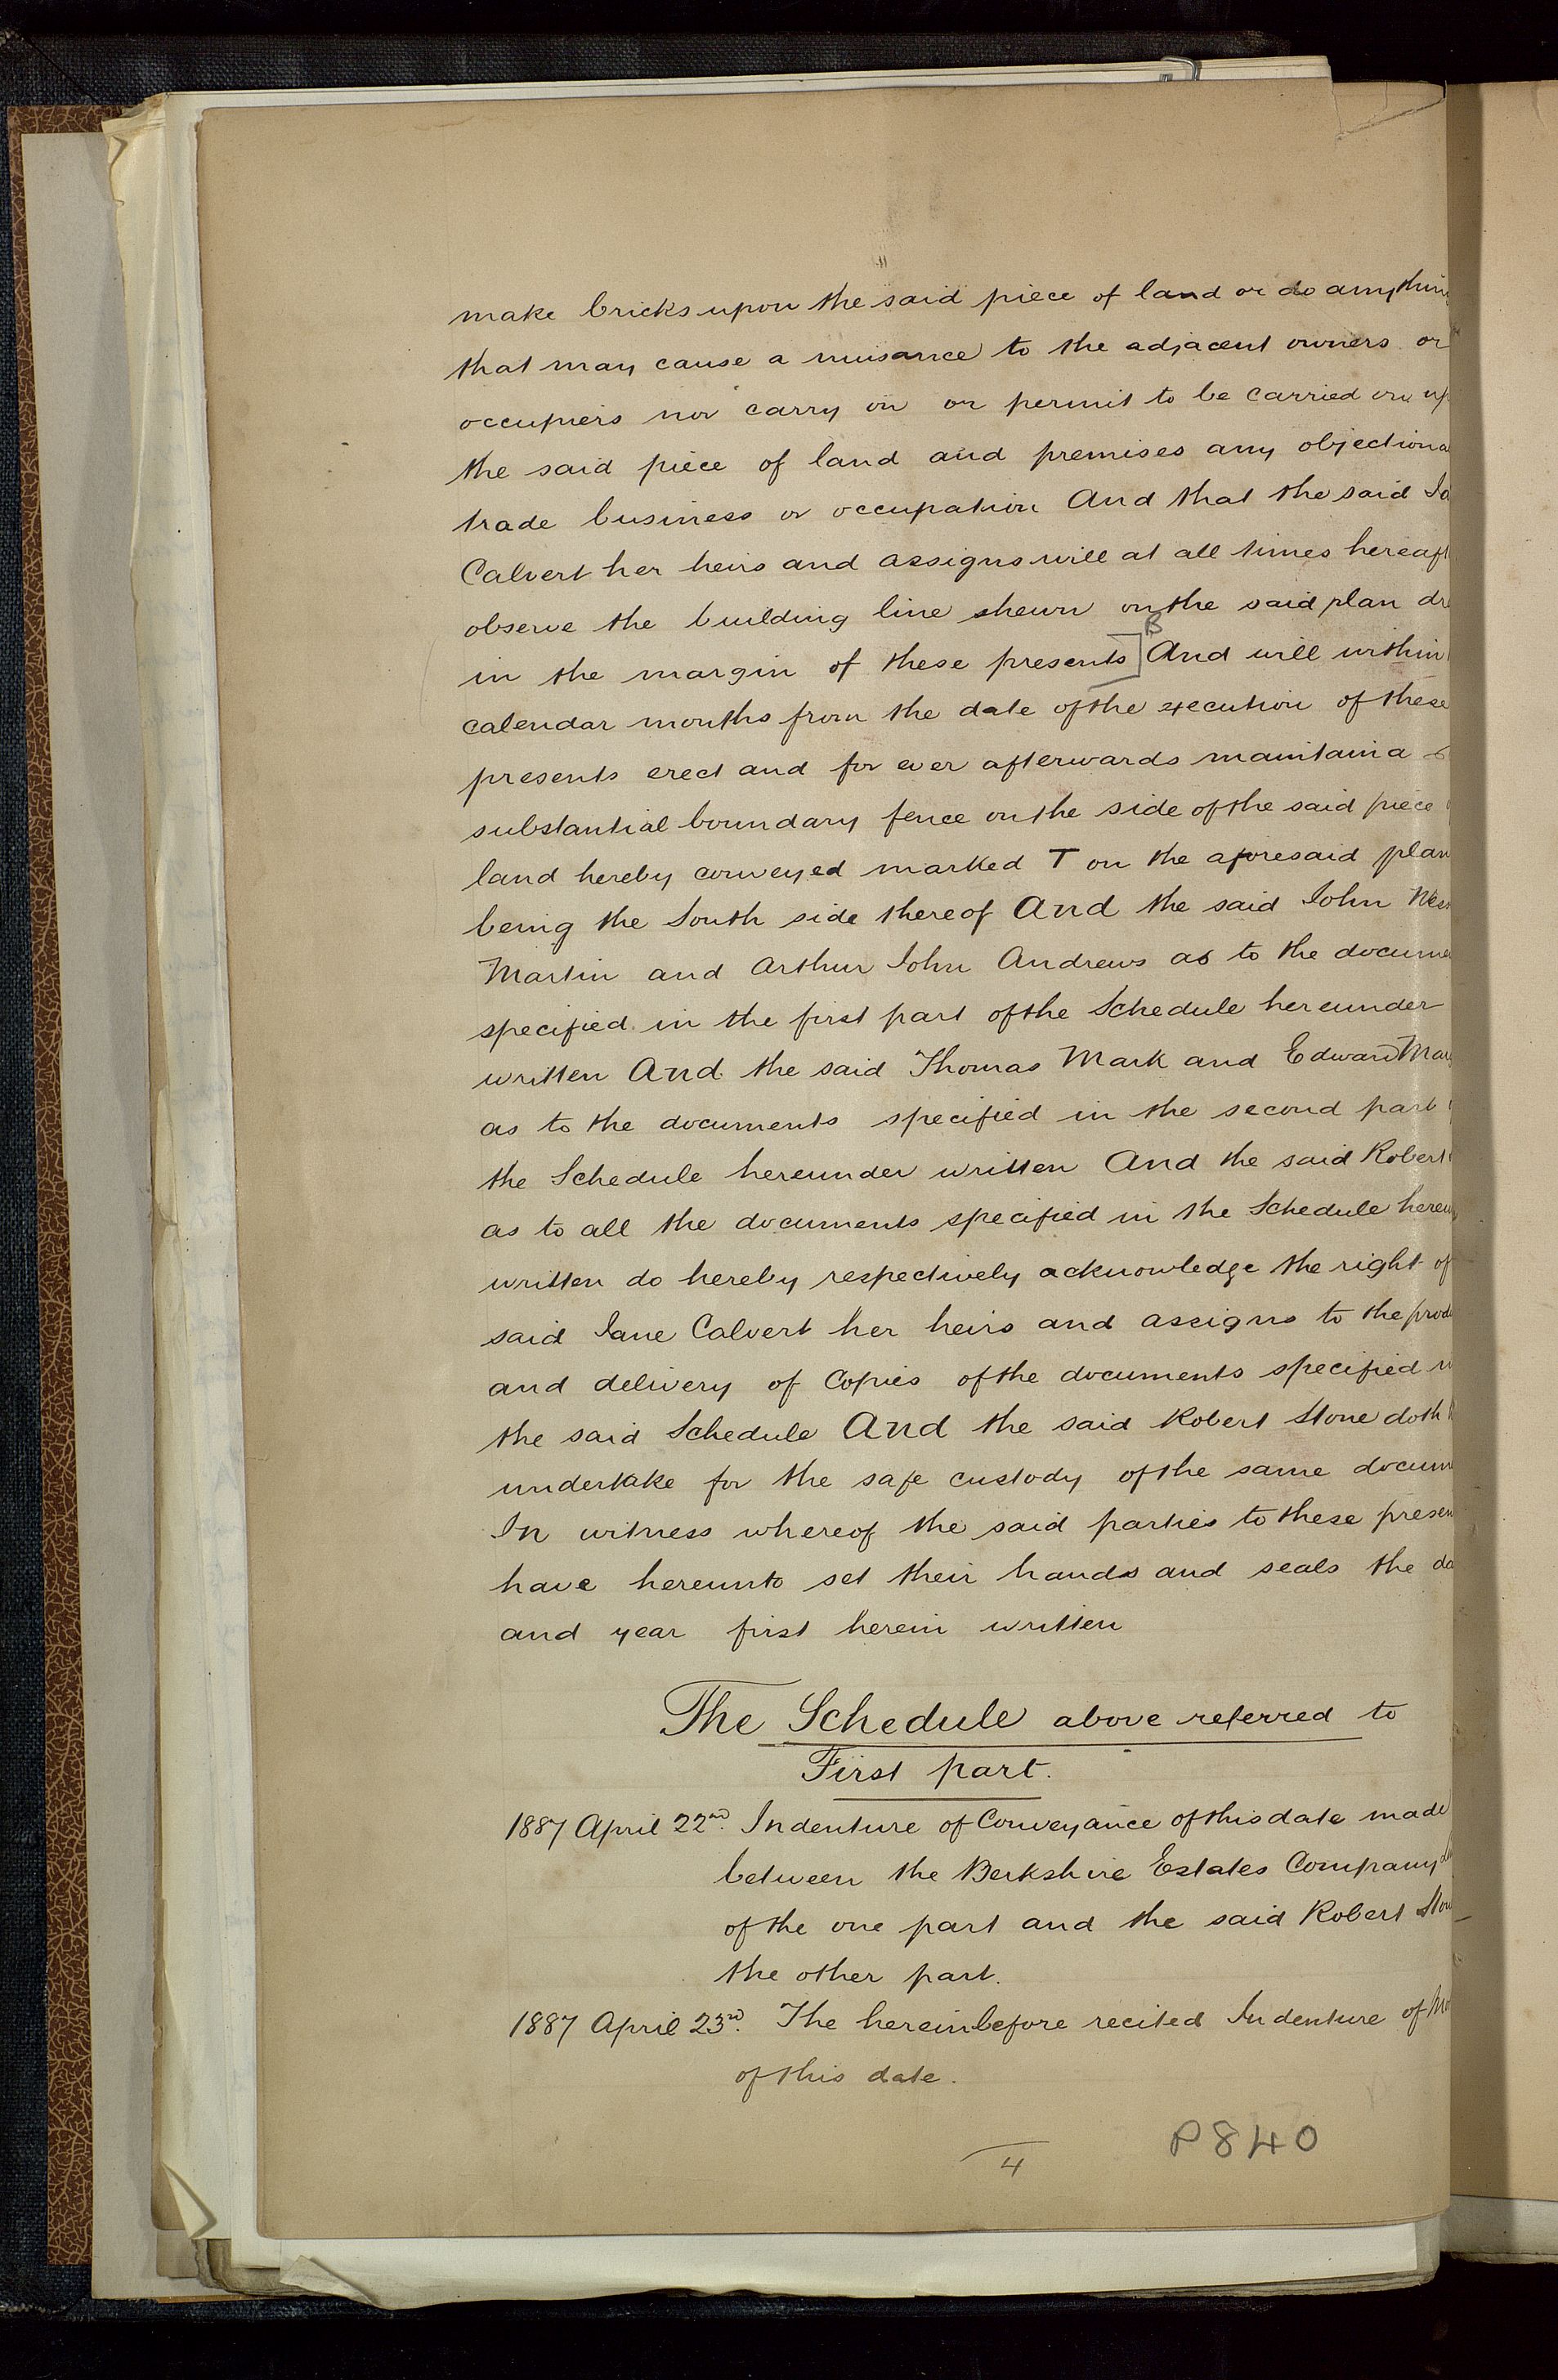 make bricks upon the said piece of land or do anythin
that may cause a nuisance to the adjacent owners or
occupiers nor carry on or permit to be carried on up
the said piece of land and premises any objectiona
trade business or occupation And that the said Ja
Calvert her heirs and assigns will at all times hereaft
observe the building line shewn on the said plan dra
B
in the margin of these presents] And will within
calendar months from the date of the execution of these
presents erect and for ever afterwards maintain a
substantial boundary fence on the side of the said piece
land hereby conveyed marked T on the aforesaid plan
being the South side thereof And the said John
Martin and Arthur John Andrews as to the docume
specified in the first part of the Schedule hereunder
written And the said Thomas Mark and Edward Mar
as to the documents specified in the second part
the Schedule hereunder written And the said Robert
as to all the documents specified in the Schedule hereu
written do hereby respectively acknowledge the right of
said Jane Calvert her heirs and assigns to the prod
and delivery of Copies of the documents specified
the said Schedule And the said Robert Stone doth
undertake for the safe custody of the same docum
In witness whereof the said parties to these presen
have hereunto set their hands and seals the da
and year first herein written
The Schedule above referred to
First part.
1887 April 22nd. Indenture of Conveyance of this date made
between the Berkshire Estates Company
of the one part and the said Robert Ston
the other part.
1887 April 23rd. The hereinbefore recited Indenture of Mo
of this date.
4
P840